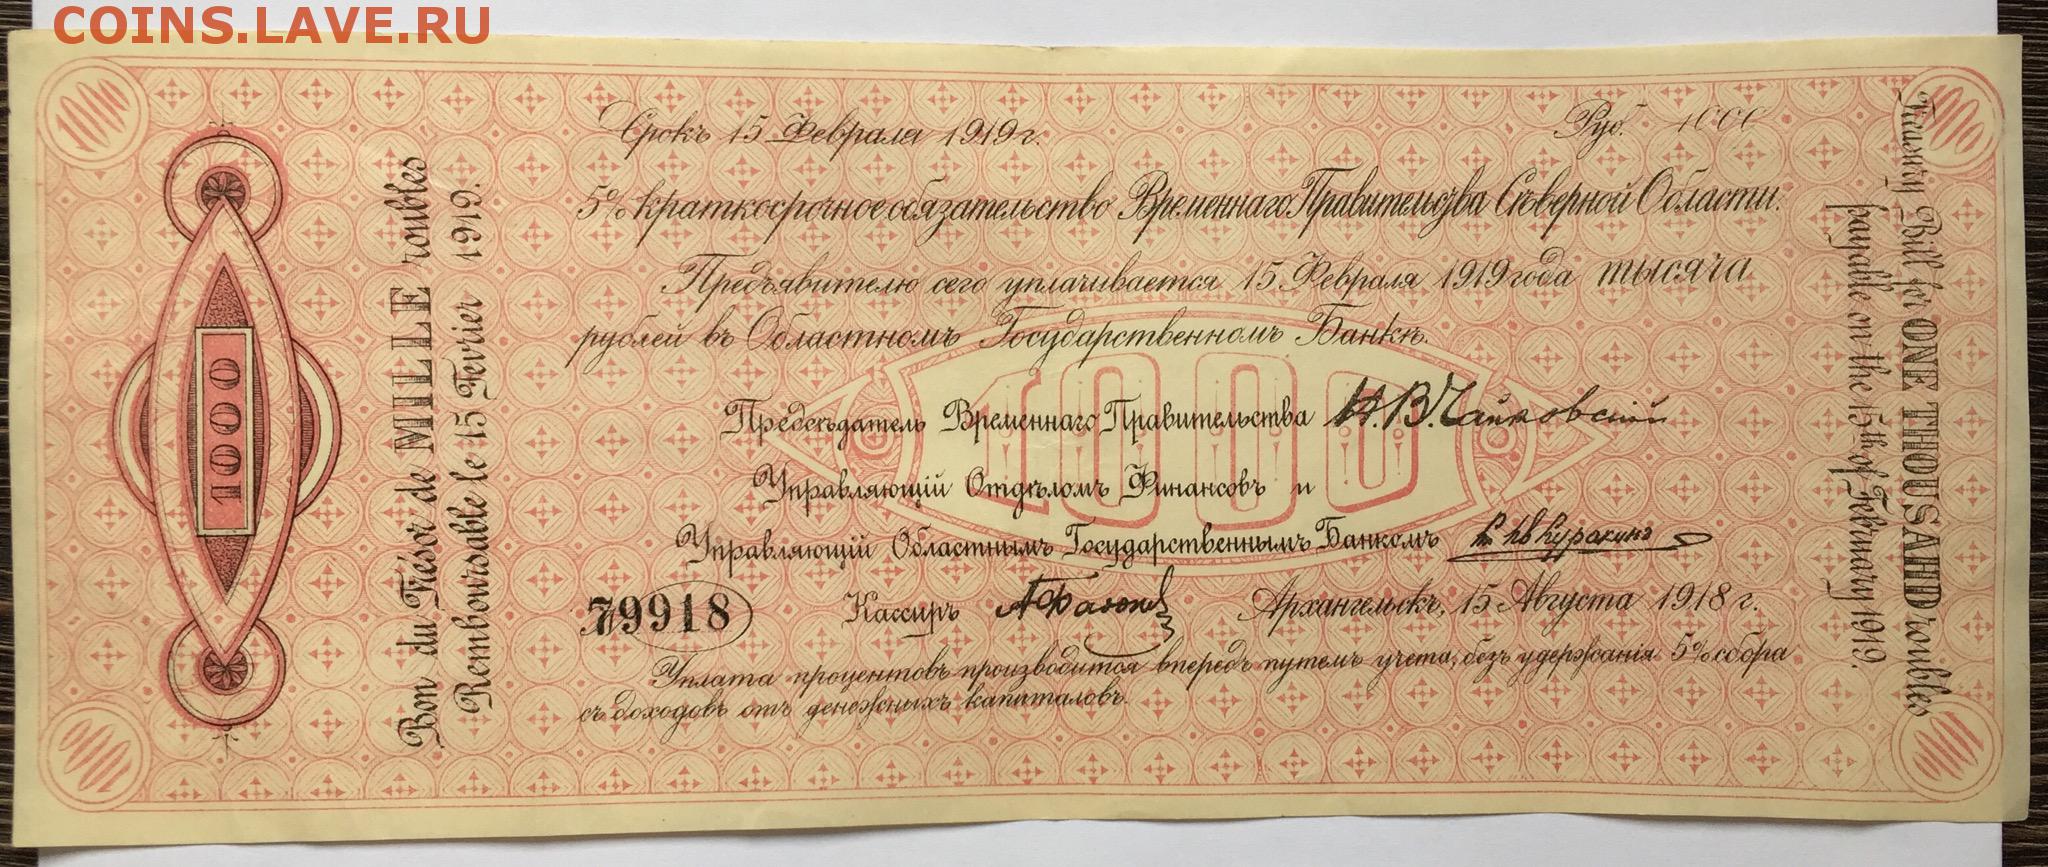 COINS.LAVE.RU
1000
Bon du Trésor de MILLE roubles
Remboursable le 15 Fevrier 1919.
Срокъ 15 Февраля 1919 г.
Руб. 1000
5% краткосрочное обязательство Временнаго Правительства Сѣверной Области.
Предъявителю сего уплачивается 15 Февраля 1919 года тысяча
рублей въ Областномъ Государственномъ Банкѣ.
1000
Предсѣдатель Временнаго Правительства Н.В.Чайковскій
Управляющій Отдѣломъ Финансовъ и
Управляющій Областнымъ Государственнымъ Банкомъ
79918
Кассиръ
Архангельскъ, 15 Августа 1918 г.
Уплата процентовъ производится впередъ путемъ учета, безъ удержанія 5% сбора
съ доходовъ отъ денежныхъ капиталовъ.
Treasury Bill for ONE THOUSAND roubles
payable on the 15th of February 1919.